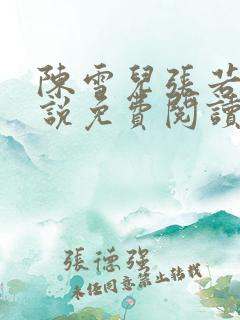 陳雪兒張若
說免費閱讀
張德強
未經同意禁止轉載